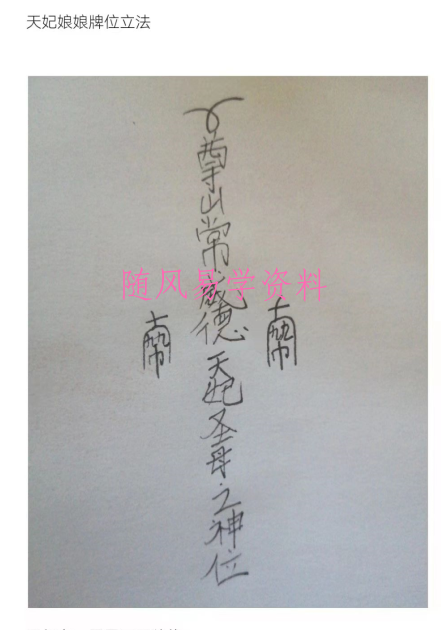 天妃娘娘牌位立法
尊山常威德天妃圣母之神位
随风易学资料